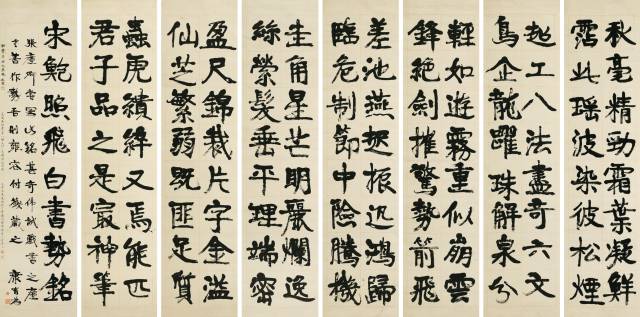 秋毫精勁霜葉凝鮮
霑此瑤波染彼松煙
超工八法盡奇六文
鳥企龍躍珠解泉分
輕如遊霧重似崩雲
鋒絕劍摧驚勢箭飛
差池燕起振迅鴻歸
臨危制節中險騰機
圭角星芒明麗爛逸
絲縈髮垂平理端密
盈尺錦裁片字金溢
仙芝繁弱既匪足質
蟲虎續緯又焉能匹
君子品之是最神筆
宋鮑照飛白書勢銘
康有為